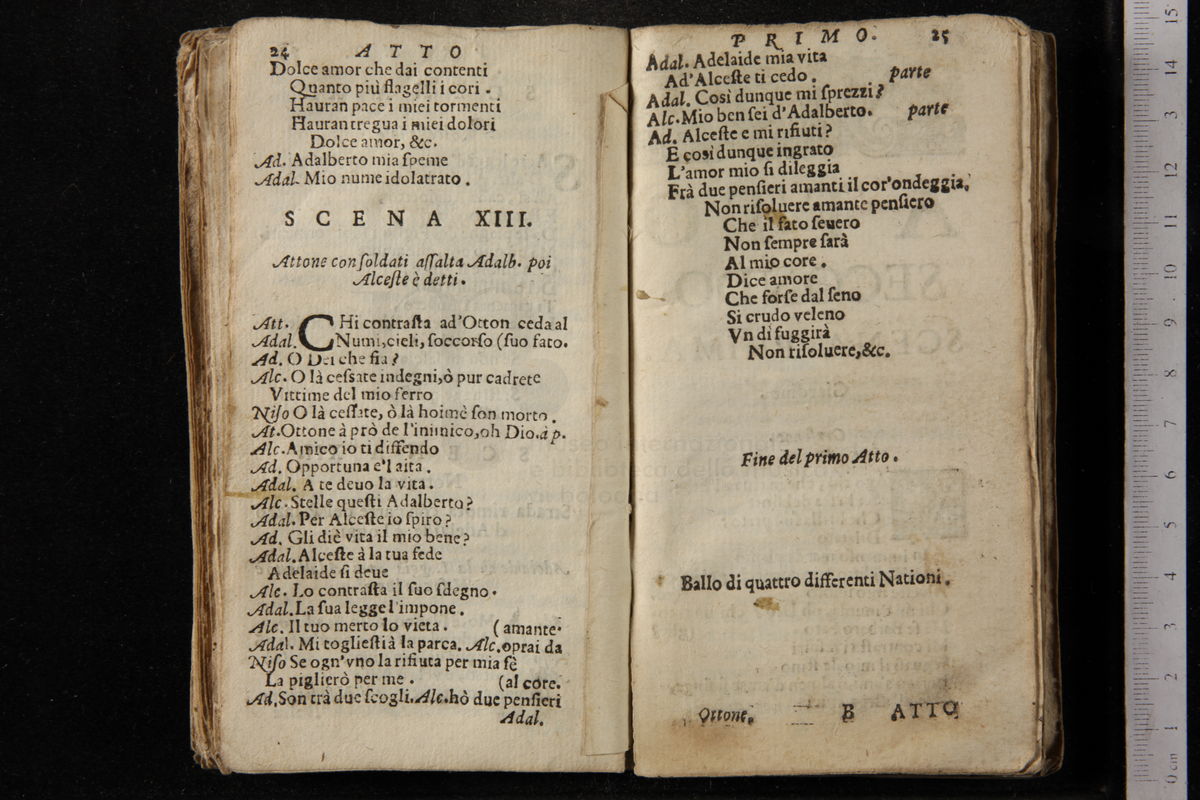 24 ATTO
Dolce amor che dai contenti
Quanto più flagelli i cori .
Hauran pace i miei tormenti
Hauran tregua i miei dolori
Dolce amor, &c.
Ad. Adalberto mia ſpeme
Adal. Mio nume idolatrato .
SCENA XIII.
Attone con ſoldati aſſalta Adalb. poi
Alceſte è detti .
Att. CHi contraſta ad'Otton ceda al
Adal. Numi, cieli, ſoccorſo (ſuo fato.
Ad. O Dei che fia ?
Alc. O là ceſsate indegni, ò pur cadrete
Vittime del mio ferro
Niſo O là ceſſate, ò là hoimè ſon morto .
At. Ottone à prò de l'inimico, oh Dio. à p.
Alc. Amico io ti diffendo
Ad. Opportuna e'l aita .
Adal. A te deuo la vita .
Alc. Stelle queſti Adalberto ?
Adal. Per Alceſte io ſpiro ?
Ad. Gli diè vita il mio bene ?
Adal. Alceſte à la tua fede
Adelaide ſi deue
Alc. Lo contraſta il ſuo ſdegno .
Adal. La ſua legge l'impone .
Alc. Il tuo merto lo vieta . (amante.
Adal. Mi toglieſti à la parca. Alc. oprai da
Niſo Se ogn'vno la rifiuta per mia fè
La piglierò per me . (al core.
Ad. Son trà due ſcogli. Alc. hò due penſieri
Adal.
PRIMO. 25
Adal. Adelaide mia vita
Ad'Alceſte ti cedo . parte
Adal. Così dunque mi ſprezzi ?
Alc. Mio ben ſei d'Adalberto. parte
Ad. Alceſte e mi rifiuti ?
E così dunque ingrato
L'amor mio ſi dileggia
Frà due penſieri amanti il cor'ondeggia.
Non riſoluere amante penſiero
Che il fato ſeuero
Non ſempre ſarà
Al mio core .
Dice amore
Che forſe dal ſeno
Si crudo veleno
Vn di fuggirà
Non riſoluere, &c.
Fine del primo Atto .
Ballo di quattro differenti Nationi .
Ottone. B ATTO
0 cm 1 2 3 4 5 6 7 8 9 10 11 12 13 14 15